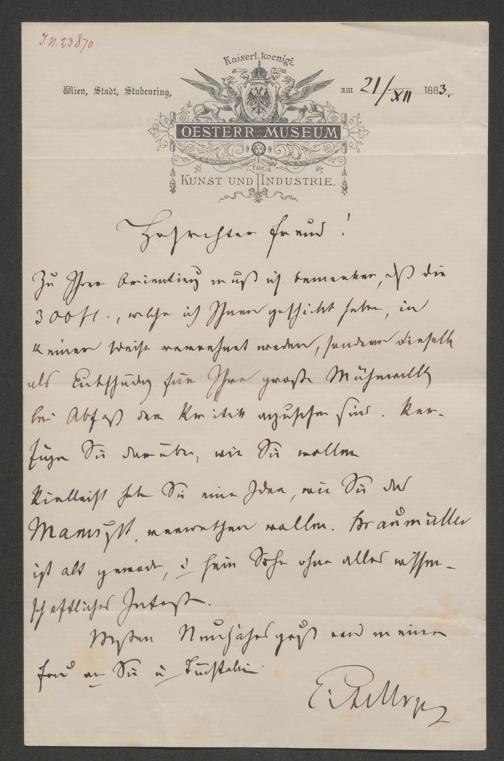 J.N. 23870
Kaiserl. koenigl.
Wien, Stadt, Stubenring, am 21/XII 1883.
OESTERR. MUSEUM
für
KUNST UND INDUSTRIE.
Freund!
Zu Ihrer Orientirung muß ich bemerken, daß die
300 fl., welche ich Ihnen geschickt habe, in
keiner Weise verrechnet werden, sondern dieselben
als für Ihre große
bei der Kritik anzusehen sind. Ver-
fügen Sie darüber, wie Sie wollen
Vielleicht haben Sie eine Idee, wie Sie das
verwerthen wollen. Braumüller
ist alt geworden, sein Sohn ohne alles wissen-
schaftliches Interesse.
Neujahrsgruß von meiner
Frau an Sie